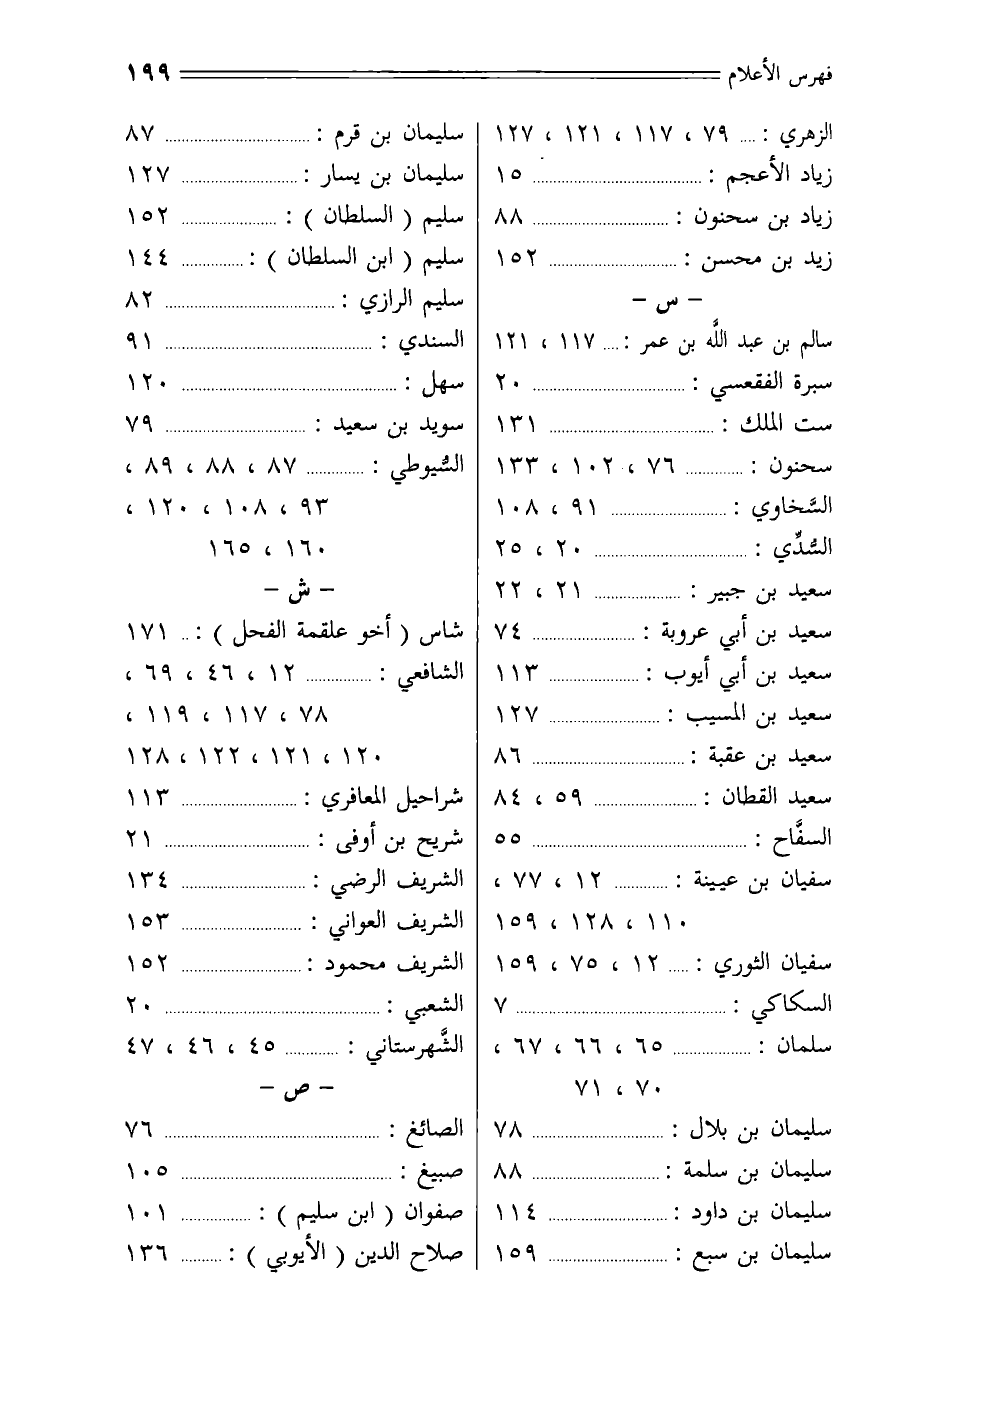 فهرس الأعلام ١٩٩
الزهري : .... ٧٩ ، ١١٧ ، ١٢١ ، ١٢٧
زياد الأعجم : .... ١٥
زياد بن سحنون : .... ٨٨
زيد بن محسن : .... ١٥٢
– س –
سالم بن عبد اللَّه بن عمر : .... ١١٧ ، ١٢١
سبرة الفقعسي : .... ٢٠
ست الملك : .... ١٣١
سحنون : .... ٧٦ ، ١٠٢ ، ١٣٣
السَّخاوي : .... ٩١ ، ١٠٨
السُّدِّي : .... ٢٠ ، ٢٥
سعيد بن جبير : .... ٢١ ، ٢٢
سعيد بن أبي عروبة : .... ٧٤
سعيد بن أبي أيوب : .... ١١٣
سعيد بن المسيب : .... ١٢٧
سعيد بن عقبة : .... ٨٦
سعيد القطان : .... ٥٩ ، ٨٤
السفَّاح : .... ٥٥
سفيان بن عيينة : .... ١٢ ، ٧٧ ،
١١٠ ، ١٢٨ ، ١٥٩
سفيان الثوري : .... ١٢ ، ٧٥ ، ١٥٩
السكاكي : .... ٧
سلمان : .... ٦٥ ، ٦٦ ، ٦٧ ،
٧٠ ، ٧١
سليمان بن بلال : .... ٧٨
سليمان بن سلمة : .... ٨٨
سليمان بن داود : .... ١١٤
سليمان بن سبع : .... ١٥٩
سليمان بن قرم : .... ٨٧
سليمان بن يسار : .... ١٢٧
سليم ( السلطان ) : .... ١٥٢
سليم ( ابن السلطان ) : .... ١٤٤
سليم الرازي : .... ٨٢
السندي : .... ٩١
سهل : .... ١٢٠
سويد بن سعيد : .... ٧٩
السُّيوطي : .... ٨٧ ، ٨٨ ، ٨٩ ،
٩٣ ، ١٠٨ ، ١٢٠ ،
١٦٠ ، ١٦٥
– ش –
شاس ( أخو علقمة الفحل ) : .. ١٧١
الشافعي : .... ١٢ ، ٤٦ ، ٦٩ ،
٧٨ ، ١١٧ ، ١١٩ ،
١٢٠ ، ١٢١ ، ١٢٢ ، ١٢٨
شراحيل المعافري : .... ١١٣
شريح بن أوفى : .... ٢١
الشريف الرضي : .... ١٣٤
الشريف العواني : .... ١٥٣
الشريف محمود : .... ١٥٢
الشعبي : .... ٢٠
الشَّهرستاني : .... ٤٥ ، ٤٦ ، ٤٧
– ص –
الصائغ : .... ٧٦
صبيغ : .... ١٠٥
صفوان ( ابن سليم ) : .... ١٠١
صلاح الدين ( الأيوبي ) : .... ١٣٦